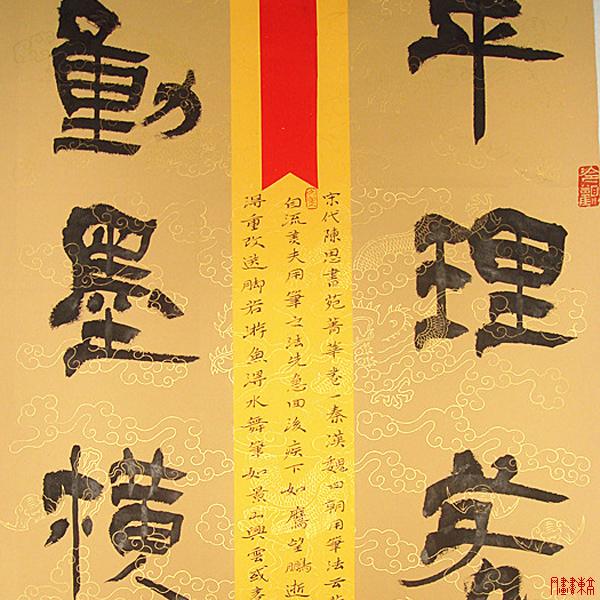 平理若
宋代陳思書苑菁華卷一秦漢魏四朝用筆法云
自流美夫用筆之法先急回後疾下如鷹望鵬逝
得重改送脚若游魚得水舞筆如景山興雲或
動墨橫